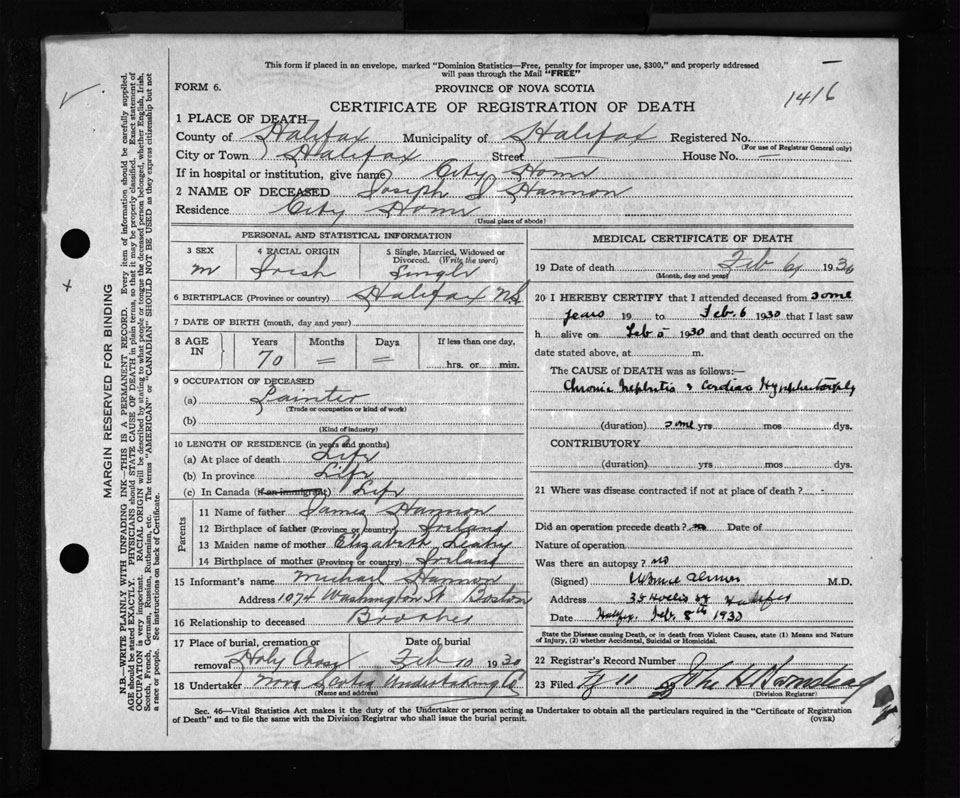 This form if placed in an envelope, marked "Dominion Statistics—Free, penalty for improper use, $300," and properly addressed
will pass through the Mail "FREE"
FORM 6.
PROVINCE OF NOVA SCOTIA
1416
CERTIFICATE OF REGISTRATION OF DEATH
1 PLACE OF DEATH
County of Halifax Municipality of Halifax Registered No.
(For use of Registrar General only)
City or Town Halifax Street — House No. —
If in hospital or institution, give name City Home
2 NAME OF DECEASED Joseph J Hannon
Residence City Home
(Usual place of abode)
PERSONAL AND STATISTICAL INFORMATION
3 SEX 4 RACIAL ORIGIN 5 Single, Married, Widowed or
Divorced. (Write the word)
M Irish Single
6 BIRTHPLACE (Province or country) Halifax NS
7 DATE OF BIRTH (month, day and year)
8 AGE IN Years Months Days If less than one day,
70 = = hrs. or min.
9 OCCUPATION OF DECEASED
(a) Painter
(Trade or occupation or kind of work)
(b)
(Kind of industry)
10 LENGTH OF RESIDENCE (in years and months)
(a) At place of death Life
(b) In province Life
(c) In Canada (if an immigrant) Life
Parents
11 Name of father James Hannon
12 Birthplace of father (Province or country) Ireland
13 Maiden name of mother Elizabeth Leahy
14 Birthplace of mother (Province or country) Ireland
15 Informant's name Michael Hannon
Address 1074 Washington St Boston
16 Relationship to deceased Brother
17 Place of burial, cremation or Date of burial
removal Holy Cross Feb 10 1930
18 Undertaker Nova Scotia Undertaking Co
(Name and address)
MEDICAL CERTIFICATE OF DEATH
19 Date of death Feb 6 1930
(Month, day and year)
20 I HEREBY CERTIFY that I attended deceased from some
years 19 to Feb. 6 1930 that I last saw
h alive on Feb 5 1930 and that death occurred on the
date stated above, at m.
The CAUSE OF DEATH was as follows:—
Chronic Nephritis & Cardiac
(duration) some yrs mos dys.
CONTRIBUTORY
(duration) yrs mos dys.
21 Where was disease contracted if not at place of death?
Did an operation precede death? no Date of
Nature of operation
Was there an autopsy? no
(Signed) M.D.
Address 35 Hollis St Halifax
Date Halifax, Feb. 8th 1930
State the Disease causing Death, or in death from Violent Causes, state (1) Means and Nature
of Injury, (2) whether Accidental, Suicidal or Homicidal.
22 Registrar's Record Number
23 Filed 11
(Division Registrar)
Sec. 46—Vital Statistics Act makes it the duty of the Undertaker or person acting as Undertaker to obtain all the particulars required in the "Certificate of Registration
of Death" and to file the same with the Division Registrar who shall issue the burial permit.
(OVER)
MARGIN RESERVED FOR BINDING
N.B.—WRITE PLAINLY WITH UNFADING INK—THIS IS A PERMANENT RECORD. Every item of information should be carefully supplied.
AGE should be stated EXACTLY. PHYSICIANS should STATE CAUSE OF DEATH in plain terms, so that it may be properly classified. Exact statement of
OCCUPATION is very important. RACIAL ORIGIN will be described by stating to what people or tongue the deceased person belonged, whether English, Irish,
Scotch, French, German, Russian, Ruthenian, etc. The terms "AMERICAN" or "CANADIAN" SHOULD NOT BE USED as they express citizenship but not
a race or people. See instructions on back of Certificate.